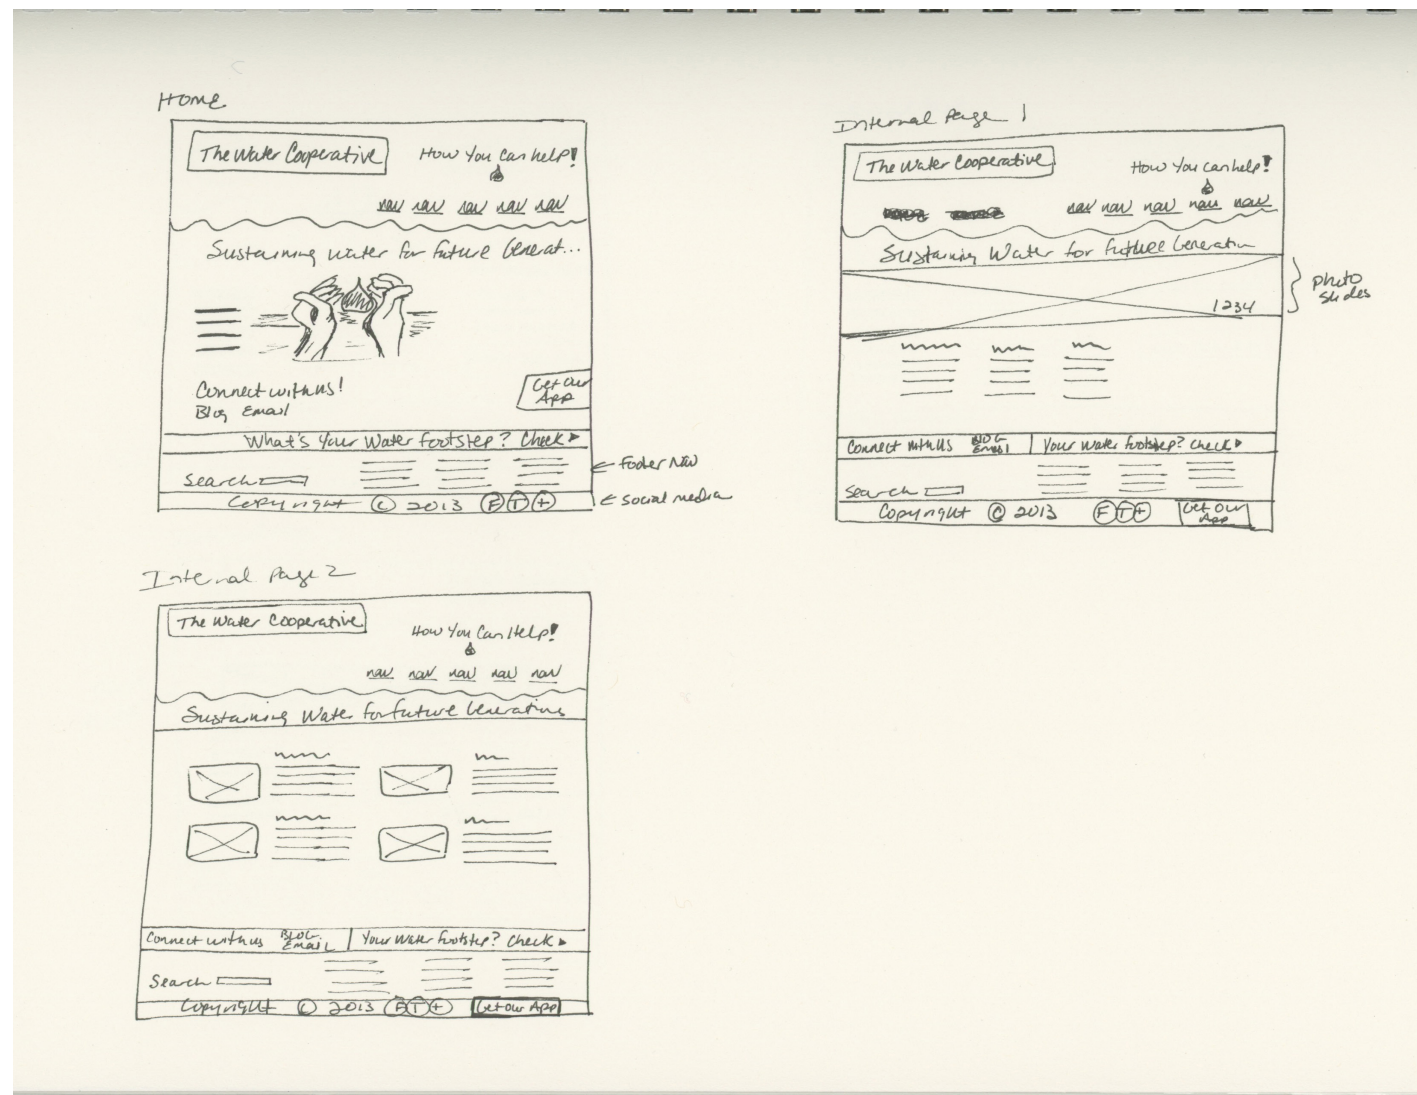 Home
The Water Cooperative
How You Can help!
nav nav nav nav nav
Sustaining water for future Generat...
Connect with us!
Blog Email
Get Our
App
What's Your Water footstep? Check
Search
Footer Nav
Copyright © 2013 F T +
Social media
Internal Page 1
The Water Cooperative
How You can help!
nav nav nav nav nav
Sustaining Water for future Generation
Photo
Slides
1234
Connect with us BLOG
Email
Your water footstep? Check
Search
Copyright © 2013 F T + Get Our
App
Internal Page 2
The Water Cooperative
How You Can Help!
nav nav nav nav nav
Sustaining Water for future Generations
Connect with us BLOG
Email
Your Water footstep? Check
Search
Copyright © 2013 F T + Get Our App